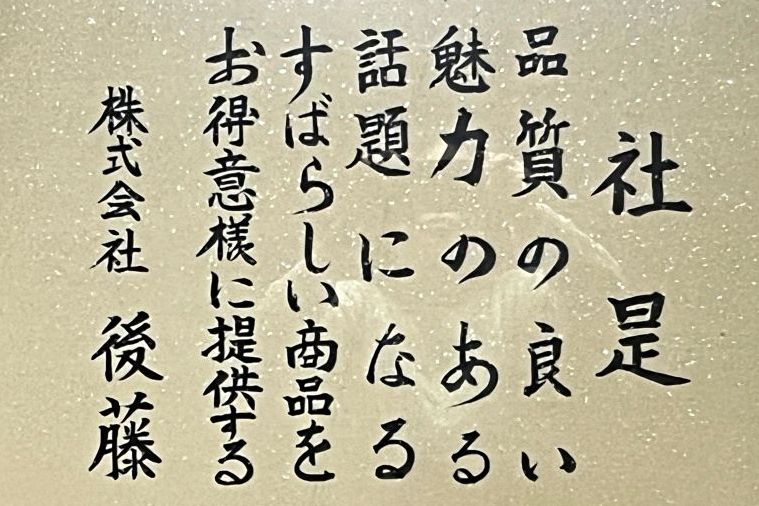 社是
品質の良い
魅力のある
話題になる
すばらしい商品を
お得意様に提供する
株式会社 後藤